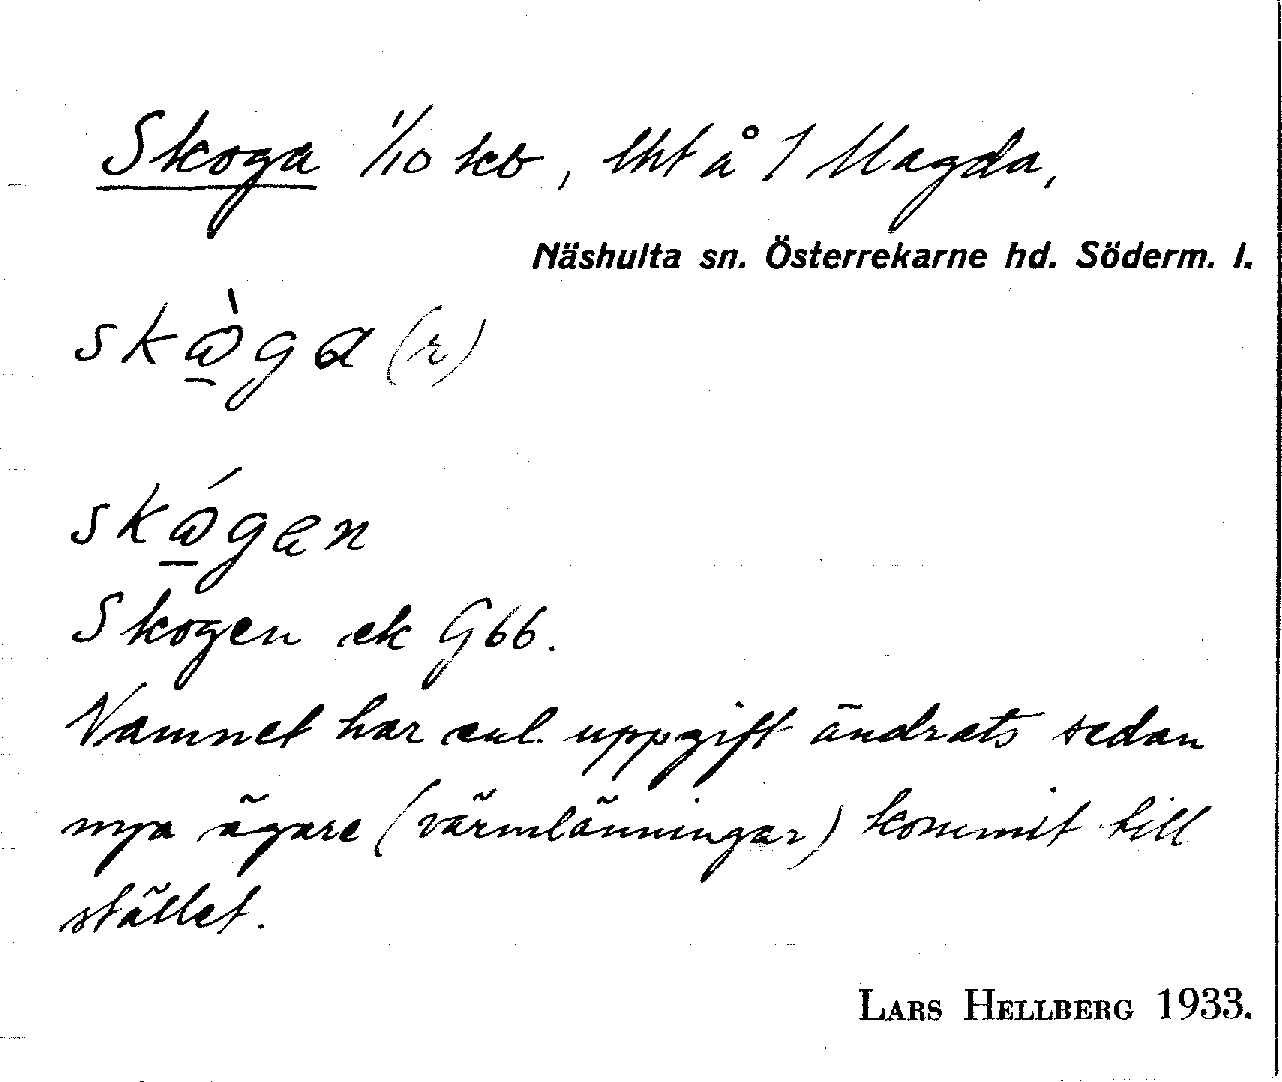 Skoga 1/10 kb, lht å 1 Magda,
Näshulta sn. Österrekarne hd. Söderm. l.
skò̱ga (r)
skó̱gan
Skogen ek G66.
Namnet har enl. uppgift ändrats sedan
nya ägare (värmlänningar) kommit till
stället.
LARS HELLBERG 1933.